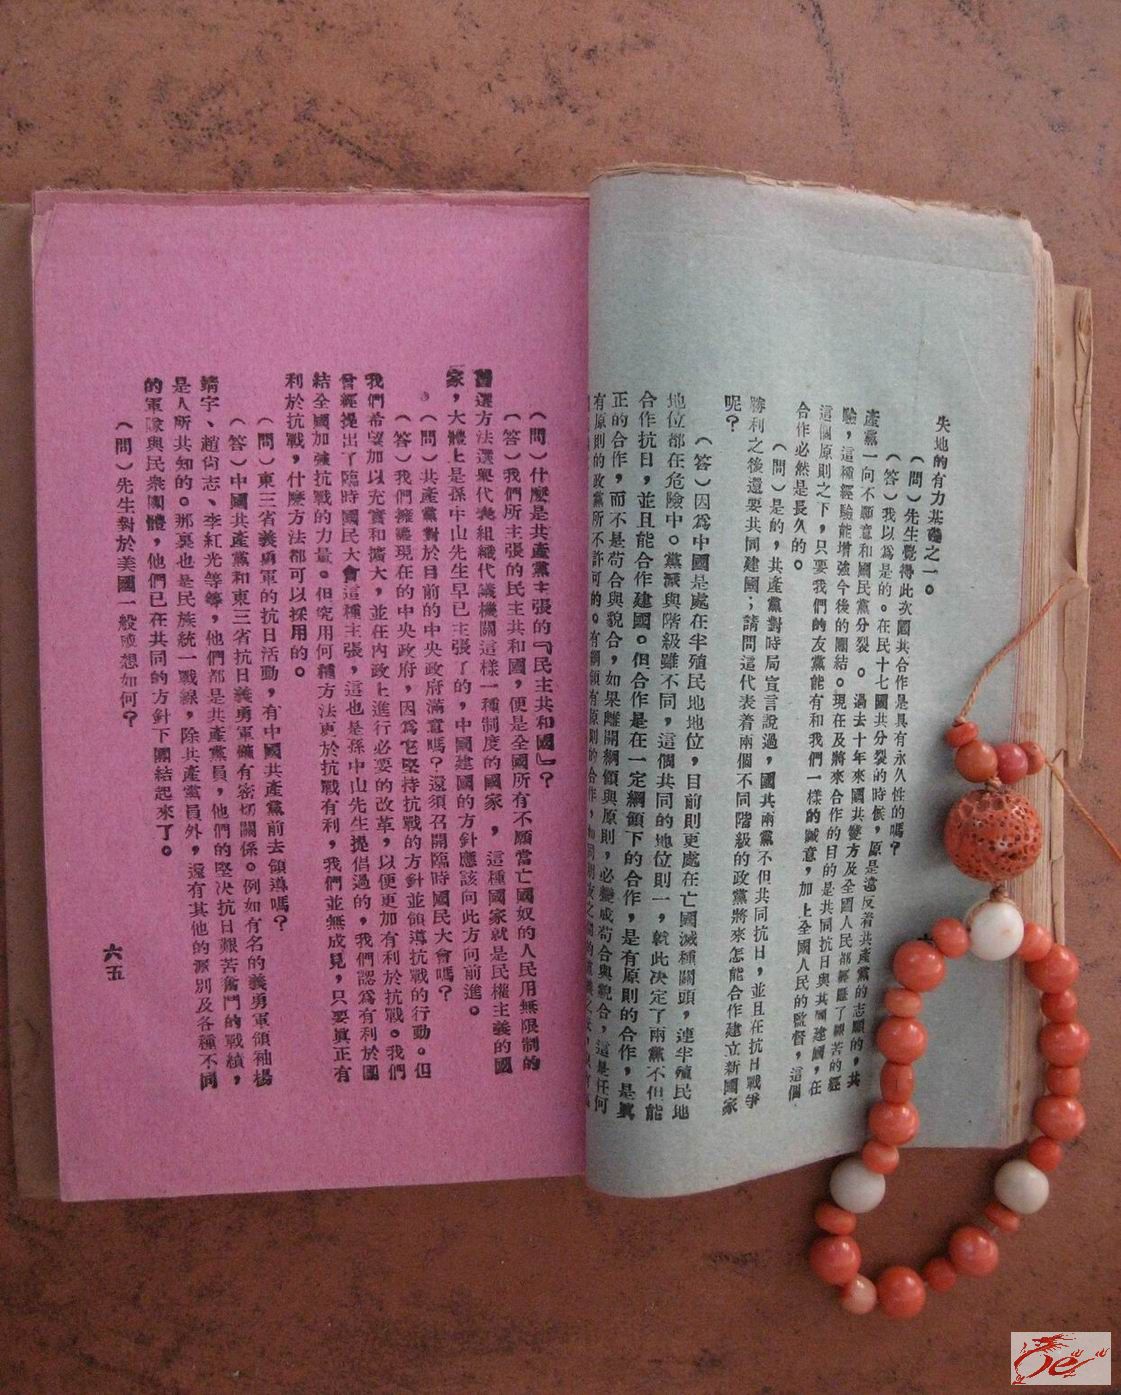 失地的有力基礎之一。
(問)先生覺得此次國共合作是具有永久性的嗎?
(答)我以為是的。在民十七國共分裂的時候,原是違反着共產黨的志願的,共
產黨一向不願意和國民黨分裂。過去十年來國共雙方及全國人民都經歷了艱苦的經
驗,這種經驗能增強今後的團結。現在及將來合作的目的是共同抗日與共同建國,在
這個原則之下,只要我們的友黨能有和我們一樣的誠意,加上全國人民的監督,這個
合作必然是長久的。
(問)是的,共產黨對時局宣言說過,國共兩黨不但共同抗日,並且在抗日戰爭
勝利之後還要共同建國;請問這代表着兩個不同階級的政黨將來怎能合作建立新國家
呢?
(答)因為中國是處在半殖民地地位,目前則更處在亡國滅種關頭,連半殖民地
地位都在危險中。黨派與階級雖不同,這個共同的地位則一,就此決定了兩黨不但能
合作抗日,並且能合作建國。但合作是在一定綱領下的合作,是有原則的合作,是真
正的合作,而不是苟合與貌合,如果離開綱領與原則,必變成苟合與貌合,這是任何
有原則的政黨所不許可的。有綱領有原則的合作,
(問)什麼是共產黨主張的『民主共和國』?
(答)我們所主張的民主共和國,便是全國所有不願當亡國奴的人民用無限制的
普選方法選舉代表組織代議機關這樣一種制度的國家,這種國家就是民權主義的國
家,大體上是孫中山先生早已主張了的,中國建國的方針應該向此方向前進。
(問)共產黨對於目前的中央政府滿意嗎?還須召開臨時國民大會嗎?
(答)我們擁護現在的中央政府,因為它堅持抗戰的方針並領導抗戰的行動。但
我們希望加以充實和擴大,並在內政上進行必要的改革,以便更加有利於抗戰。我們
曾經提出了臨時國民大會這種主張,這也是孫中山先生提倡過的,我們認為有利於團
結全國加強抗戰的力量。但究用何種方法更於抗戰有利,我們並無成見,只要真正有
利於抗戰,什麼方法都可以採用的。
(問)東三省義勇軍的抗日活動,有中國共產黨前去領導嗎?
(答)中國共產黨和東三省抗日義勇軍確有密切關係。例如有名的義勇軍領袖楊
靖宇、趙尚志、李紅光等等,他們都是共產黨員,他們的堅決抗日艱苦奮鬥的戰績,
是人所共知的。那裏也是民族統一戰線,除共產黨員外,還有其他的派別及各種不同
的軍隊與民衆團體,他們已在共同的方針下團結起來了。
(問)先生對於美國一般感想如何?
六五